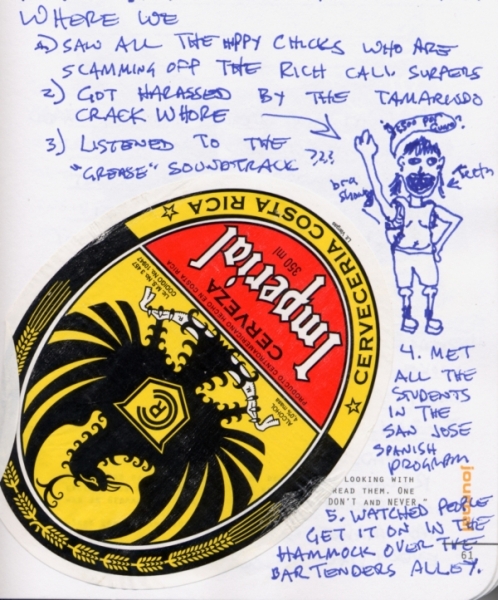 WHERE WE
1) SAW ALL THE HIPPY CHICKS WHO ARE
SCAMMING OFF THE RICH CALI. SURFERS
2) GOT HARASSED BY THE TAMARINDO
CRACK WHORE
3) LISTENED TO THE
"GREASE" SOUNDTRACK ???
bra
showing
Teeth
CERVECERIA COSTA RICA
Imperial
350 ml
CERVEZA
PRODUCTO CENTROAMERICANO HECHO EN COSTA RICA
ALCOHOL
4. MET
ALL THE
STUDENTS
IN THE
SAN JOSE
SPANISH
PROGRAM
LOOKING WITH
READ THEM. ONE
DON'T AND NEVER."
journal
61
5. WATCHED PEOPLE
GET IT ON IN THE
HAMMOCK OVER THE
BARTENDERS ALLEY.